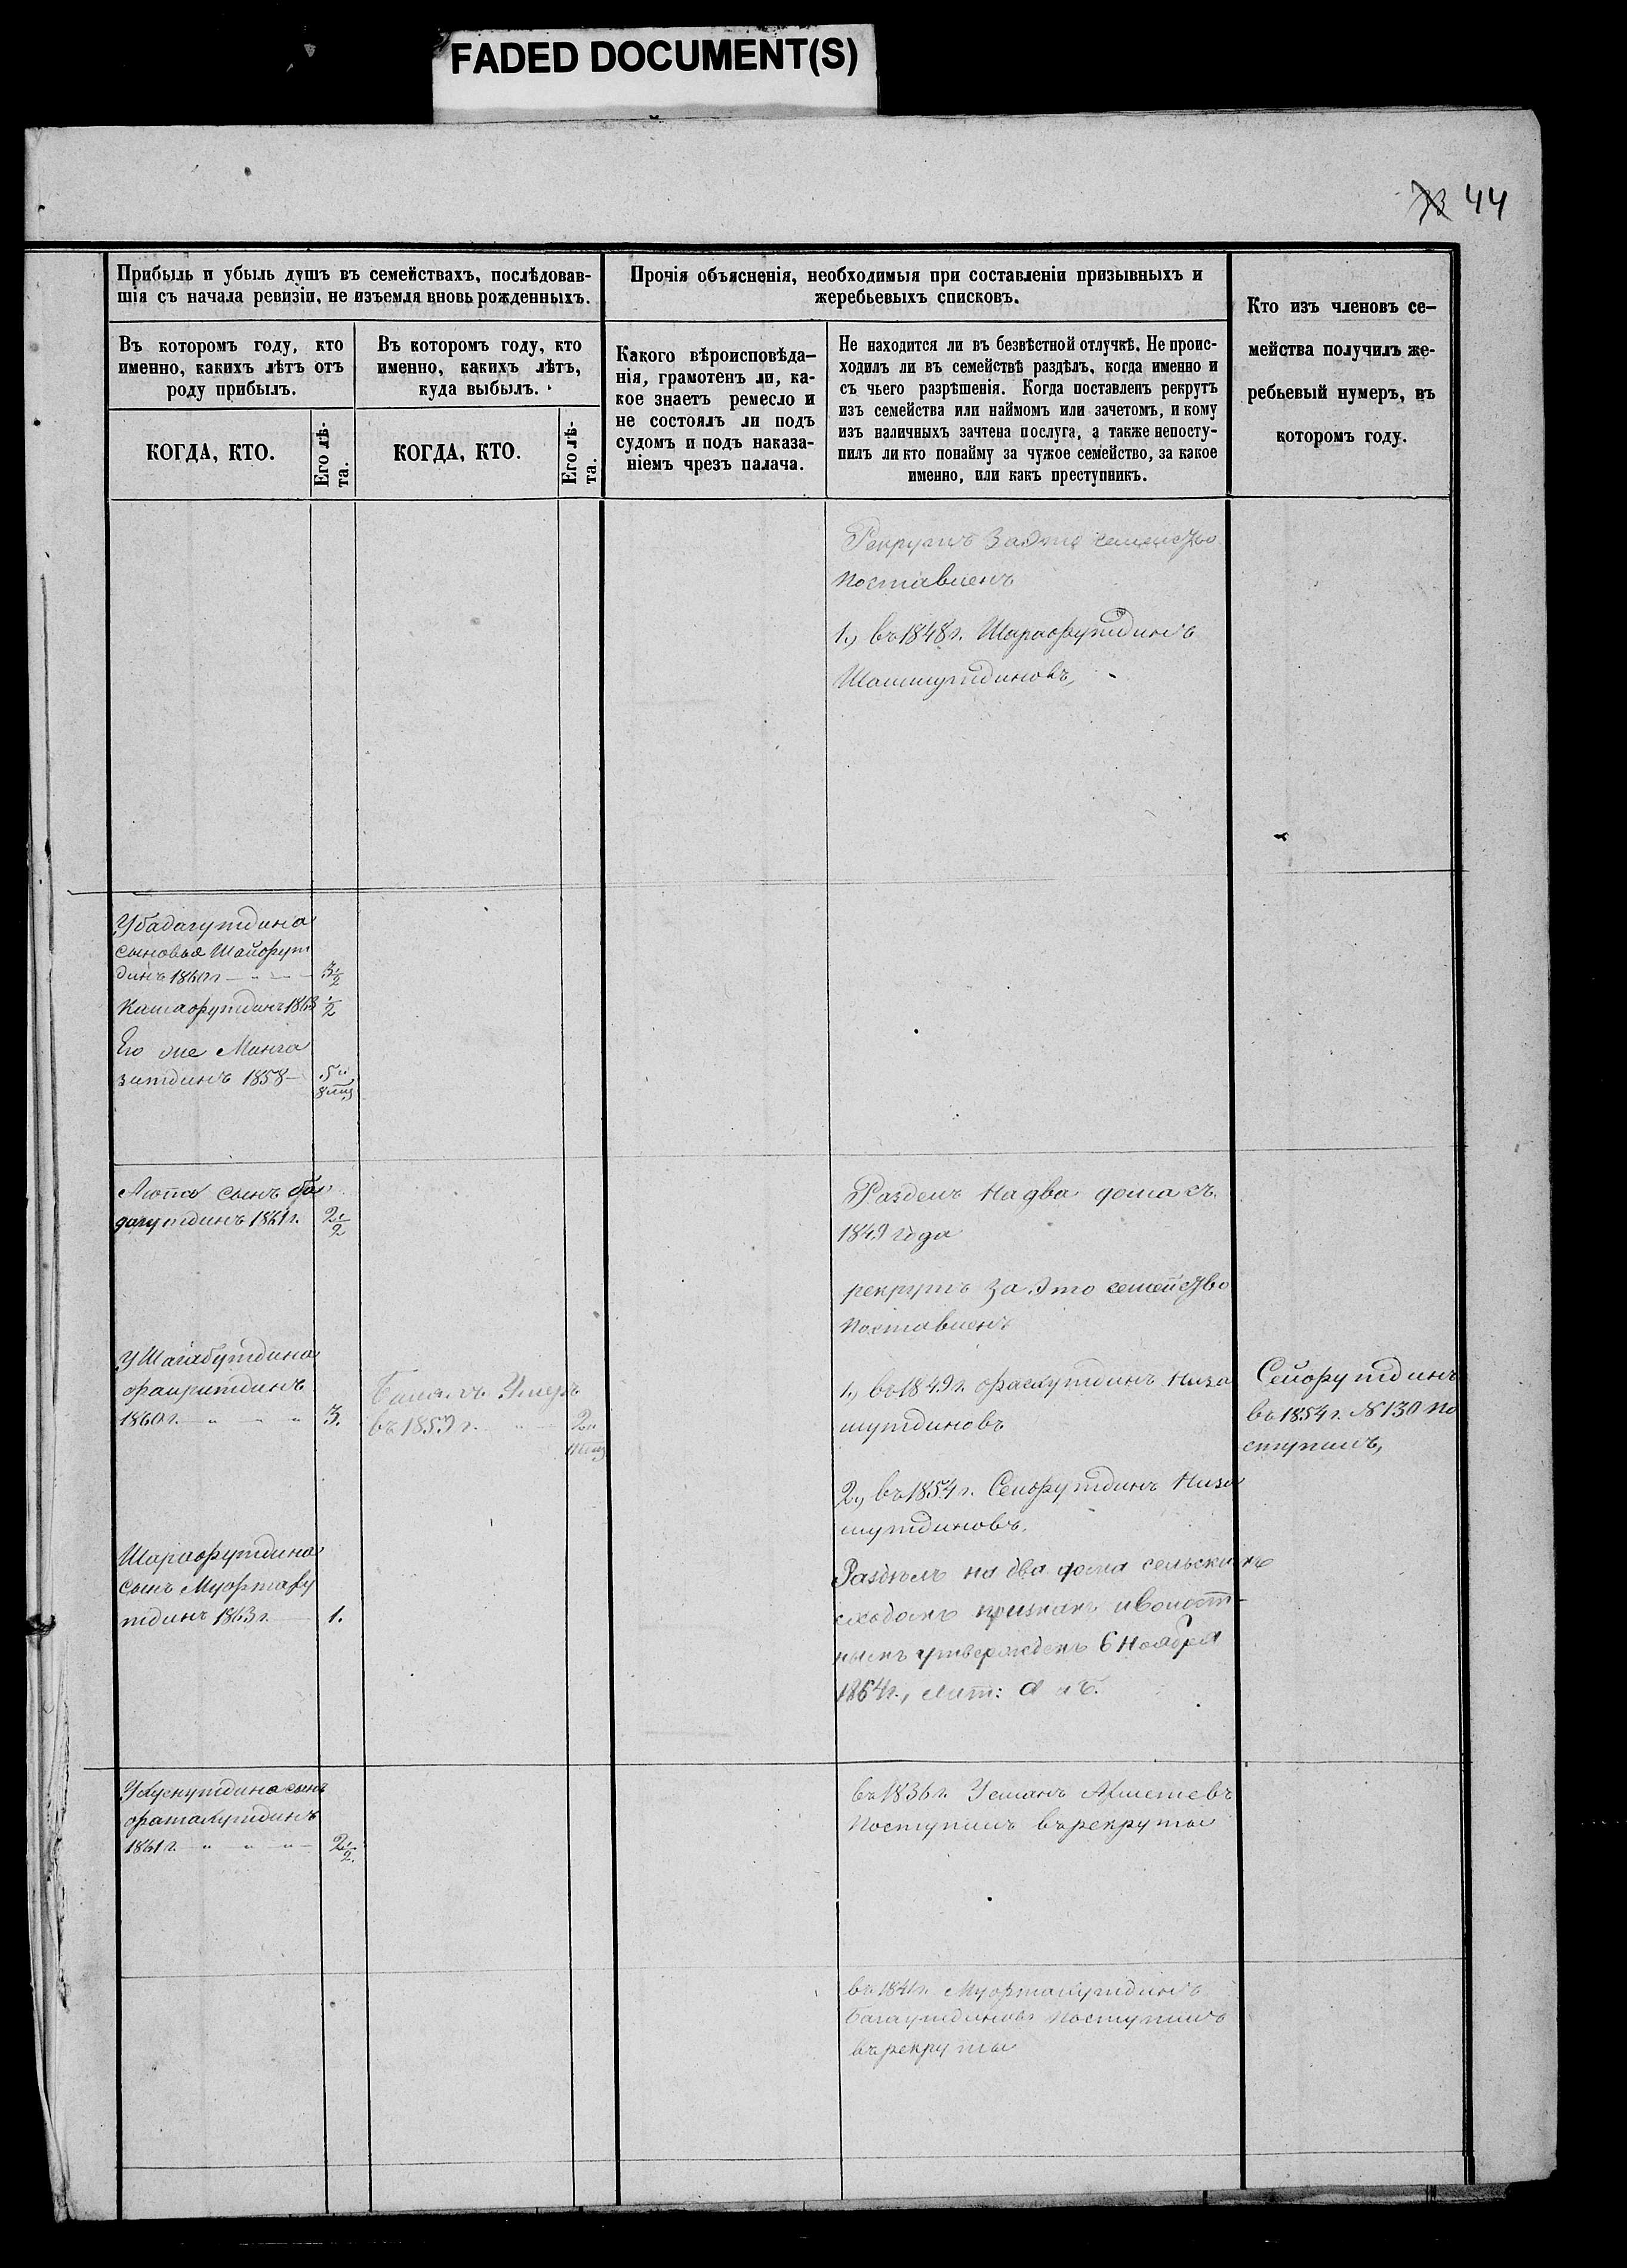 FADED DOCUMENT(S)
44
Прибыль и убыль душъ въ семействахъ, послѣдовав-
шія съ начала ревизіи, не изъемля вновь рожденныхъ.
Прочія объясненія, необходимыя при составленіи призывныхъ и
жеребьевыхъ списковъ.
Кто изъ членовъ се-
мейства получилъ же-
ребьевый нумеръ, въ
которомъ году.
Въ которомъ году, кто
именно, какихъ лѣтъ отъ
роду прибылъ.
Въ которомъ году, кто
именно, какихъ лѣтъ,
куда выбылъ.
Какого вѣроисповѣда-
нія, грамотенъ ли, ка-
кое знаетъ ремесло и
не состоялъ ли подъ
судомъ и подъ наказа-
ніемъ чрезъ палача.
Не находится ли въ безвѣстной отлучкѣ. Не проис-
ходилъ ли въ семействѣ раздѣлъ, когда именно и
съ чьего разрѣшенія. Когда поставленъ рекрутъ
изъ семейства или наймомъ или зачетомъ, и кому
изъ наличныхъ зачтена послуга, а также непосту-
пилъ ли кто понайму за чужое семейство, за какое
именно, или какъ преступникъ.
КОГДА, КТО.
Его лѣ-
та.
КОГДА, КТО.
Его лѣ-
та.
Рекрутъ За Это семейство
поставленъ
1., въ 1848 г. Шарафутдинъ
Шамшутдиновъ,
Убадагутдина
сыновья Шайфут
динъ 1860 г 3 1/2
Камафутдинъ 1863 1/2
Его же Манга
зитдинъ 1858 5 и
8 мц
сынъ
дагутдинъ 1861 г. 2 1/2
Разделъ на два дома съ
1849 года
рекрутъ за Это семейство
поставленъ
У Шагабутдина
фахритдинъ
1860 г. 3.
Умеръ
въ 1859 г. 2 и
1., въ 1849 г. фасхутдинъ Низа
мутдиновъ
2, въ 1854 г. Сейфутдинъ Низа
мутдиновъ.
Сейфутдинъ
въ 1854 г. № 130 по
ступилъ,
Шарафутдина
сынъ Муфтаху
тдинъ 1863 г. 1.
Раздѣлъ на два дома сельскимъ
сходомъ признанъ и волост-
нымъ утвержденъ 6 Ноября
1864 г., лит: а и б.
У Хуснутдина сынъ
фатахутдинъ
1861 г. 2 1/2.
въ 1836 г. Усманъ Ахметевъ
поступилъ въ рекруты
въ 1841 г. Муфтахутдинъ
Багаутдиновъ поступилъ
въ рекруты